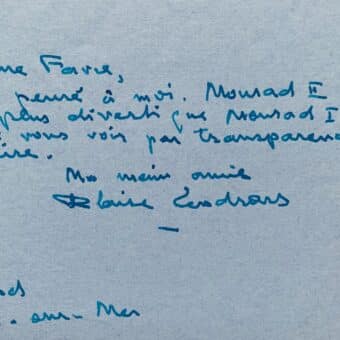 me Favre,
pensé à moi. Monsad II
plus diverti que Monsad I
vous voir par transparen
ire.
Ma main amie
Blaise Cendrars
sur-Mer